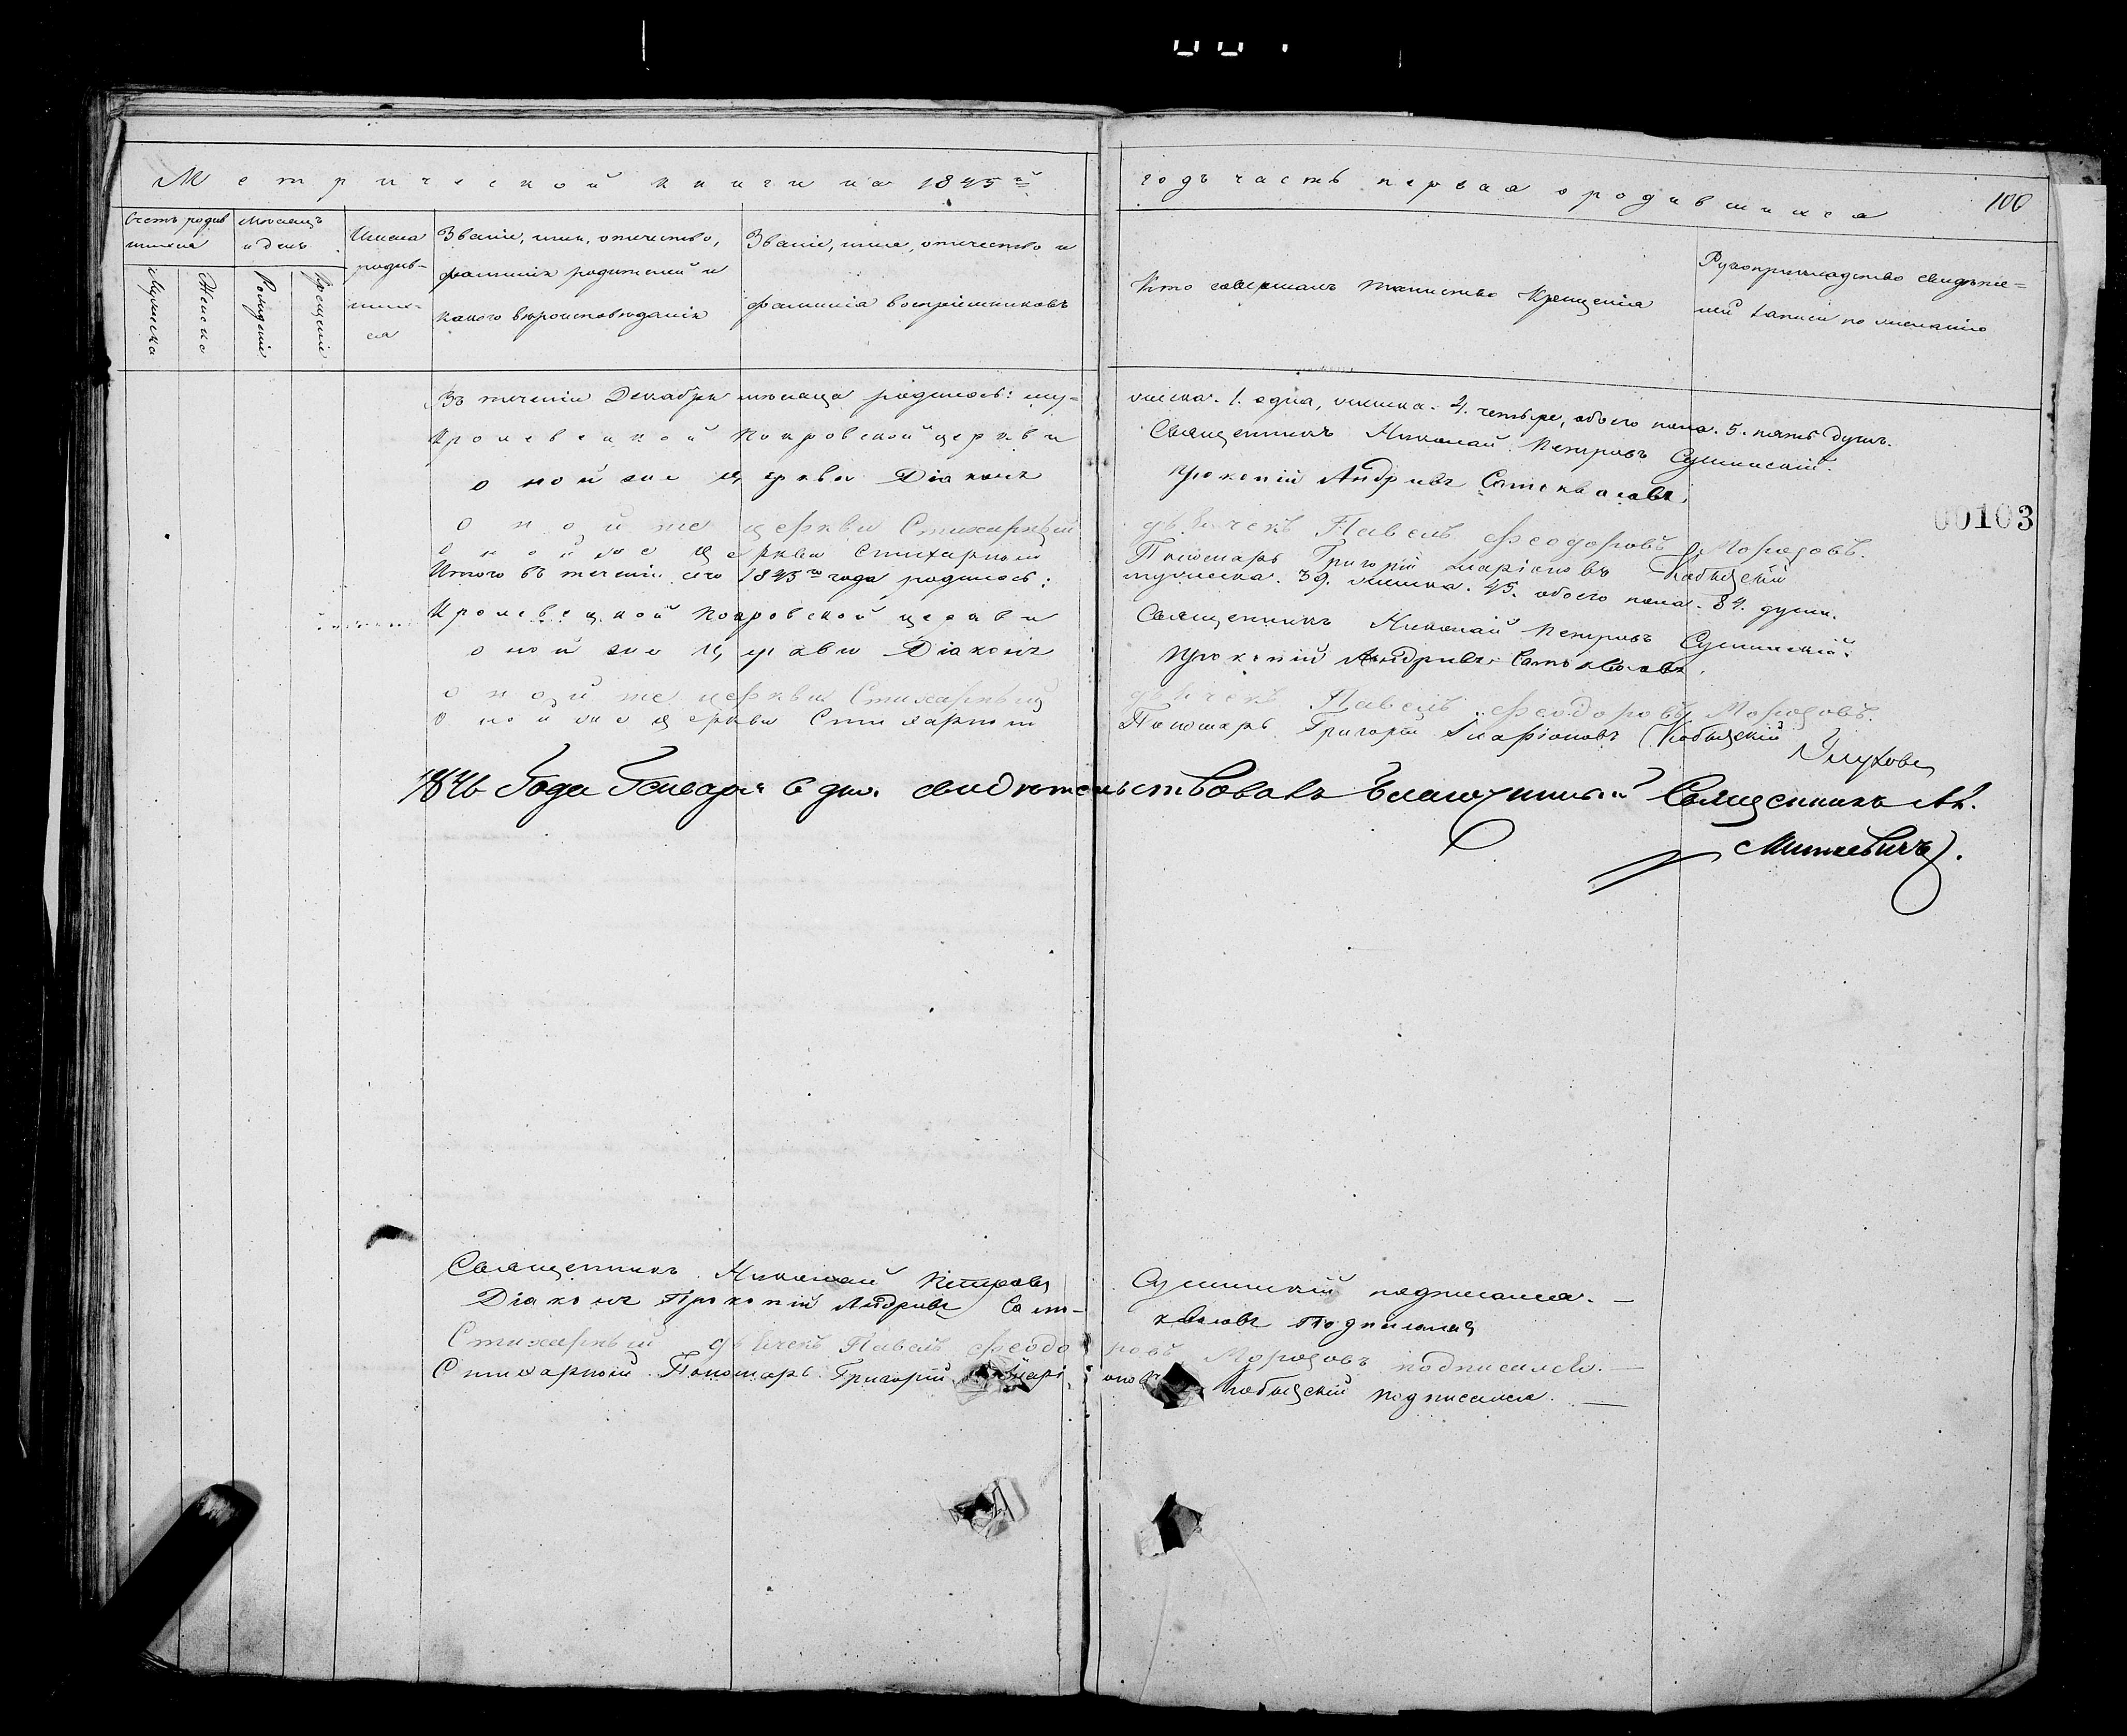 Метрической книги на 1845й годъ часть первая о родившихся
100
Счетъ родив
шихся
Мужеска
Женска
Месяцъ
и день
Рожденія
Крещенія
Имена
родив-
ших-
ся
Званіе, имя, отчество,
фамилія родителей и
какого вероисповеданія
Званіе, имя, отчество и
фамилія воспріемниковъ
Кто совершалъ таинство крещенія
Рукоприкладство свидете-
лей записи по желанію
Въ теченіи Декабря месяца родилось: му-
жеска. 1. одна, женска. 4. четыре, обоего пола. 5. пять душъ.
Кролевецкой Покровской церкви Священникъ Николай Петровъ
оной же Церкви Діаконъ Прокопій Андріевъ
00103
оной же церкви Стихарный дьячекъ Павелъ Феодоровъ Морозовъ.
оной же Церкви Стихарный Пономарь Григорій Иларіоновъ Кобыжскій
Итого въ теченіи сего 1845го года родилось: мужеска. 39. женска. 45. обоего пола. 84. души.
Кролевецкой Покровской церкви Священникъ Николай Петровъ
оной же Церкви Діаконъ Прокопій Андріевъ
оной же церкви Стихарный дьячекъ Павелъ Феодоровъ Морозовъ.
оной же Церкви Стихарный Пономарь Григорій Иларіоновъ Кобыжскій
1846 Года Генваря 6 дня свидетельствовалъ Благочинный Священникъ
Священникъ Николай Петровъ подписался.
Діаконъ Прокопій Андріевъ подписался
Стихарный дьячекъ Павелъ Феодоровъ Морозовъ подписался.
Стихарный Пономарь Григорій Кобыжскій подписался.